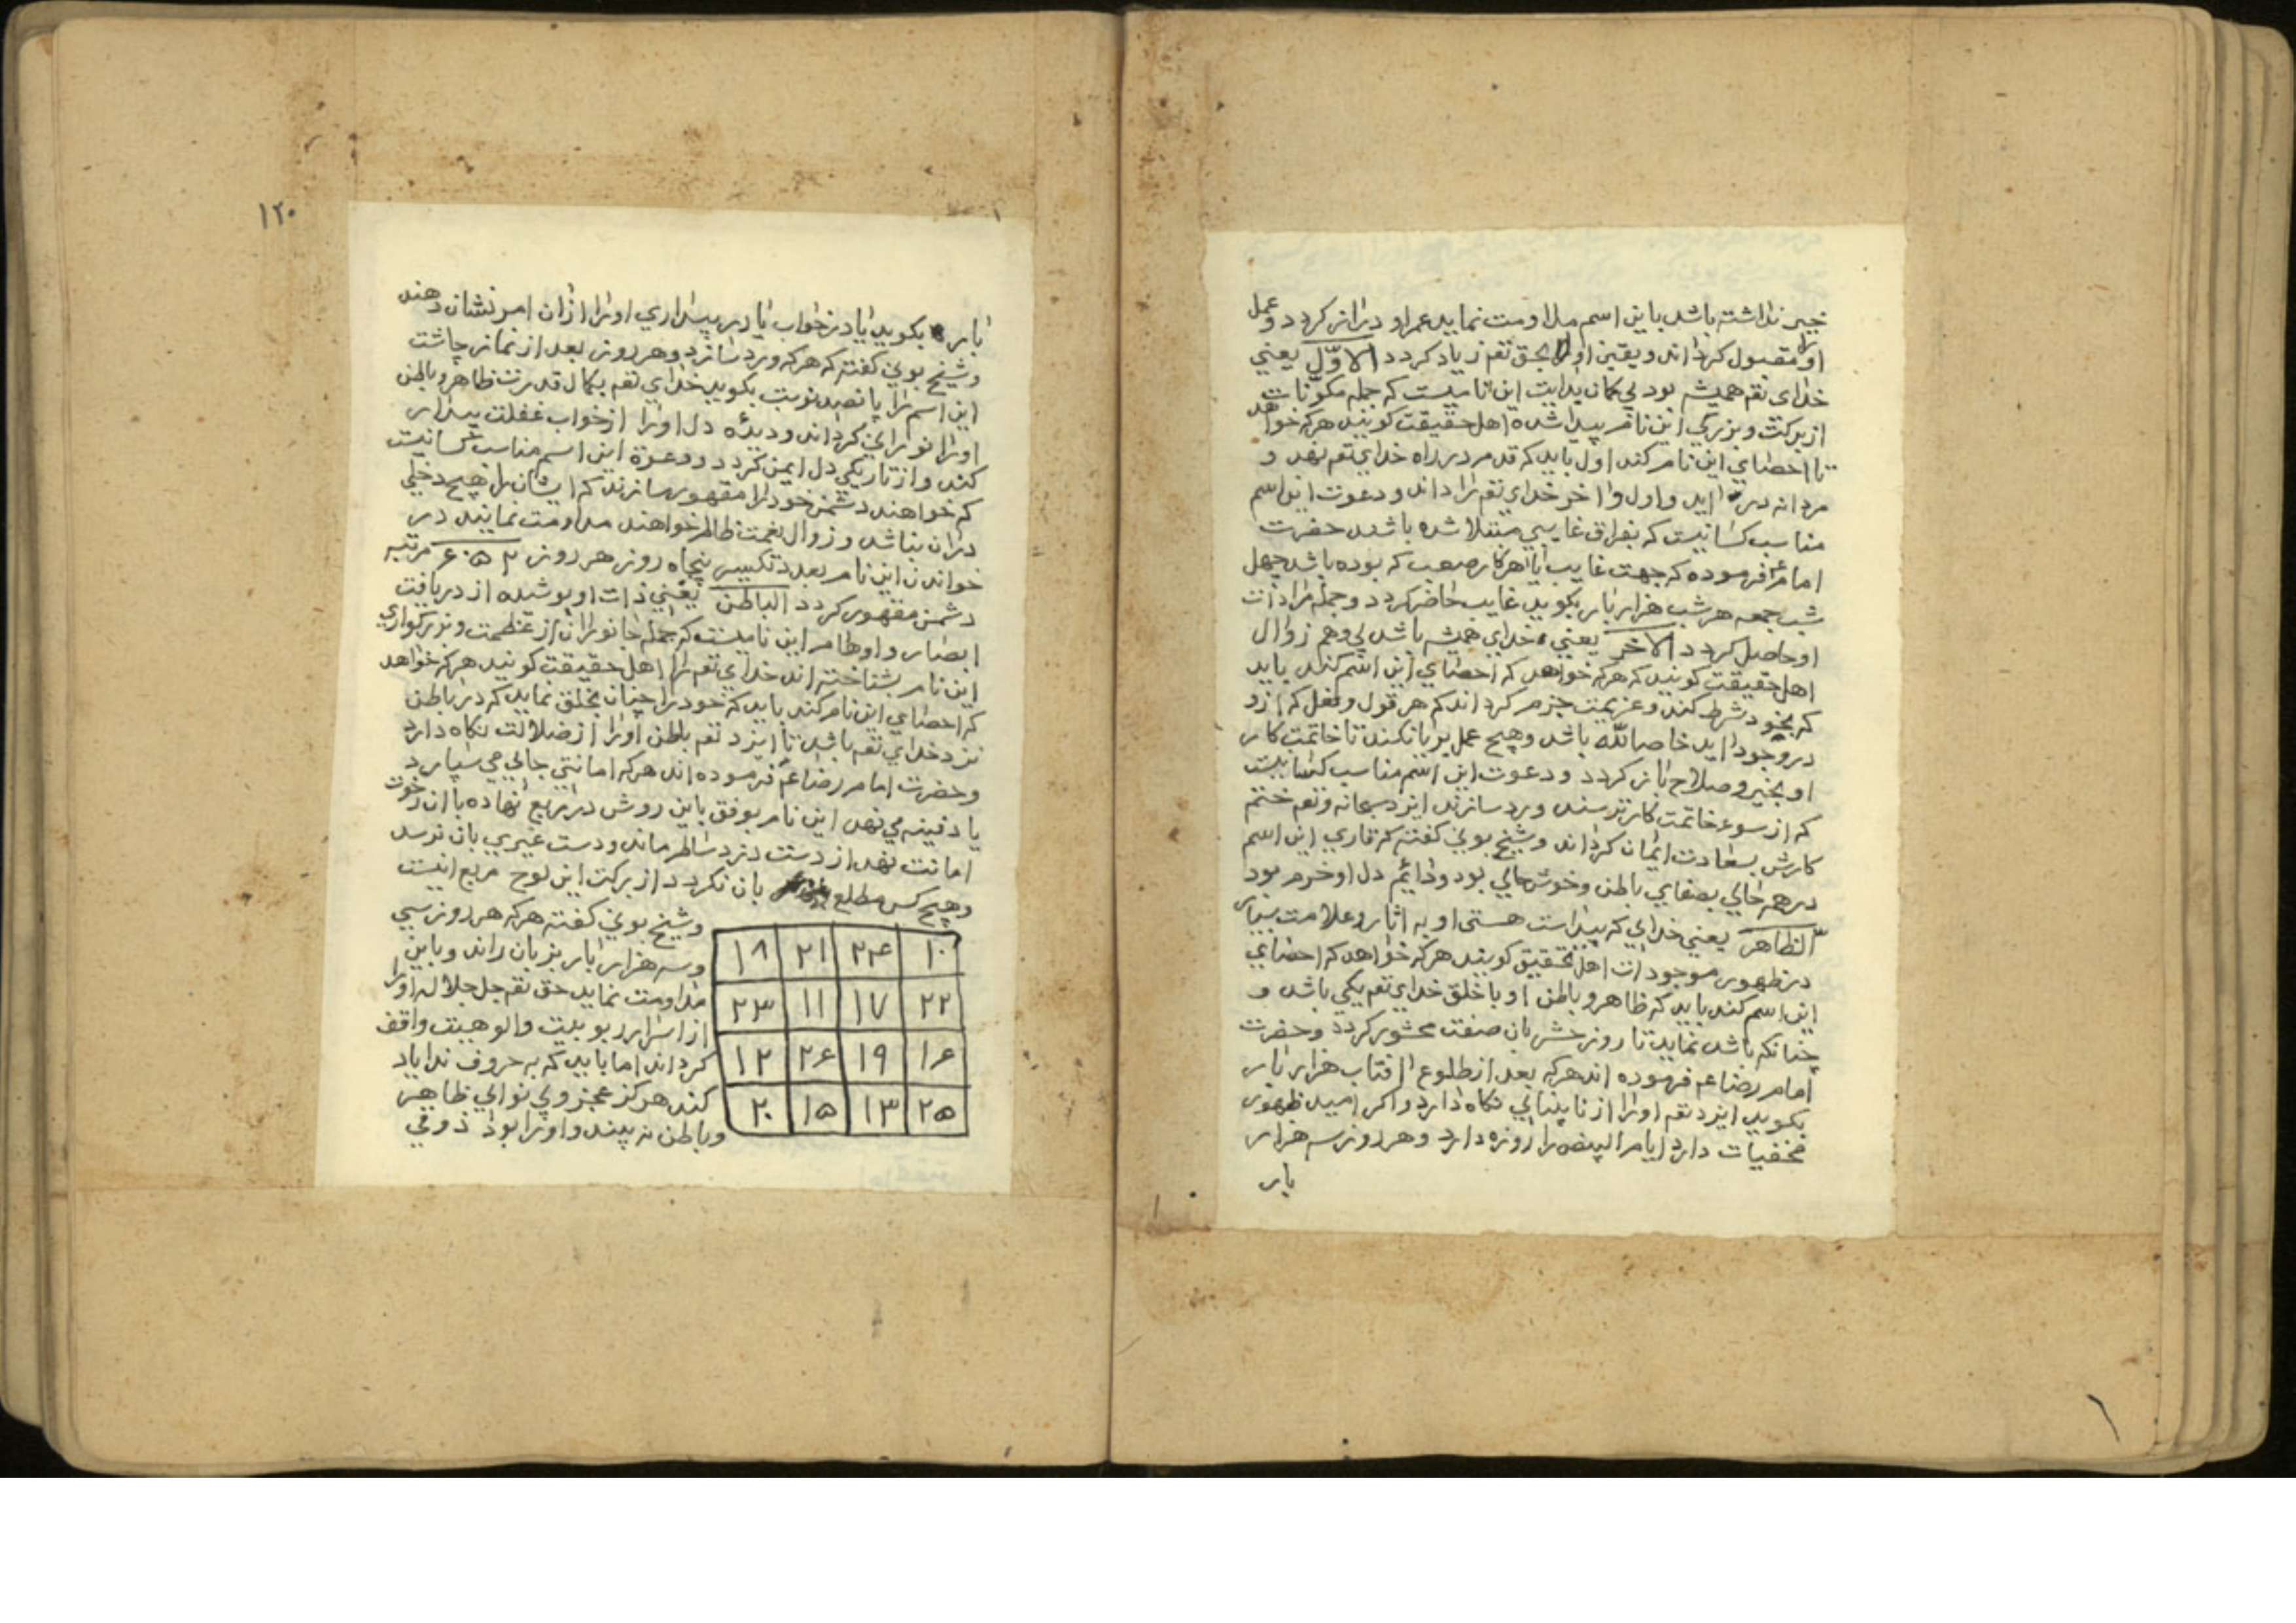 خیر نداشته باشد باین اسم مداومت نماید عمر او دراز کردد و عمل
او را مقبول کرداند و یقین او بحق تعم زیاد کردد الاوّل یعنی
خدای تعم همیشه بود بی کمان بدایت این نامیست که جمله مکونات
از برکت و بزرکی این نام پیدا شده اهل حقیقت کویند هرکه خواهد
تا احصای این نام کند اول باید که قدم در راه خدای تعم نهد و
مردانه در اید و اول و اخر خدای تعم را داند و دعوت این اسم
مناسب کسانیست که بفراق غایبی مبتلا شده باشند حضرت
امام ع فرموده که جهت غایب یا هر کار صعب که بوده باشد چهل
شب جمعه هر شب هزار بار بکوید غایب حاضر کردد و جمله مرادات
او حاصل کردد الاخر یعنی خدای همیشه باشد بی وهم زوال
اهل حقیقت کویند که هرکه خواهد که احصای این اسم کند باید
که بخود شرط کند و عزیمت جزم کرداند که هر قول و فعل که ازو
در وجود اید خاصا لله باشد و هیچ عمل بریا نکند تا خاتمت کار
او بخیر و صلاح باز کردد و دعوت این اسم مناسب کسانیست
که از سوء خاتمت کار ترسند ورد سازند ایزد سبحانه و تعم ختم
کارش بسعادت ایمان کرداند و شیخ بونی کفته که قاری این اسم
در همه حالی بصفای باطن و خوش حالی بود و دایم دل او خرم بود
الظاهر یعنی خدای که پیداست هستی او به اثار و علامت بسیار
در ظهور موجودات اهل تحقیق کویند هرکه خواهد که احصای
این اسم کند باید که ظاهر و باطن او با خلق خدای تعم یکی باشد و
چنانکه باشد نماید تا روز حشر بان صفت محشور کردد و حضرت
امام رضا عم فرموده اند هرکه بعد از طلوع افتاب هزار بار
بکوید ایزد تعم او را از نابینایی نکاه دارد و اکر امید ظهور
مخفیات دارد ایام البیض را روزه دارد و هر روز سه هزار
بار
۱۲۰
بار بکوید یا در خواب یا در بیداری او را از ان امر نشان دهند
و شیخ بونی کفته که هرکه ورد سازد و هر روز بعد از نماز چاشت
این اسم را پانصد نوبت بکوید خدای تعم بکمال قدرت ظاهر و باطن
او را نورانی کرداند و دیده دل او را از خواب غفلت بیدار
کند و از تاریکی دل ایمن کردد و دعوة این اسم مناسب کسانیست
که خواهند دشمن خود را مقهور سازند که ایشان را هیچ دخلی
دران نباشد و زوال نعمت ظالم خواهند مداومت نمایند در
خواندن این نام بعدد تکسیر پنجاه روز هر روز ۶۰۵۲ مرتبه
دشمن مقهور کردد الباطن یعنی ذات او پوشیده از دریافت
ابصار و اوهام این نامیست که جمله جانوران از عظمت و بزرکواری
این نام بشناخته اند خدای تعم را اهل حقیقت کویند هرکه خواهد
که احصای این نام کند باید که خود را چنان بخلق نماید که در باطن
نزد خدای تعم باشد تا ایزد تعم باطن او را از ضلالت نکاه دارد
و حضرت امام رضا عم فرموده اند هرکه امانتی جائی می سپارد
یا دفینه می نهد این نام بوفق باین روش در مربع نهاده با ان رخوت
امانت نهد از دست دزد سالم ماند و دست غیری بان نرسد
و هیچ کس مطلع بان نکردد از برکت این لوح مربع اینست
و شیخ بونی کفته هرکه هر روز سی
و سه هزار بار بزبان راند و باین
مداومت نماید حق تعم جل جلاله او را
از اسرار ربوبیت و الوهیت واقف
کرداند اما باید که به حروف ندا یاد
کند هرکز عجز و بی نوایی ظاهر
و باطن نه بیند و او را بود ذوقی
۱۰ ۲۴ ۲۱ ۱۸
۲۲ ۱۷ ۱۱ ۲۳
۱۶ ۱۹ ۲۶ ۱۲
۲۵ ۱۳ ۱۵ ۲۰